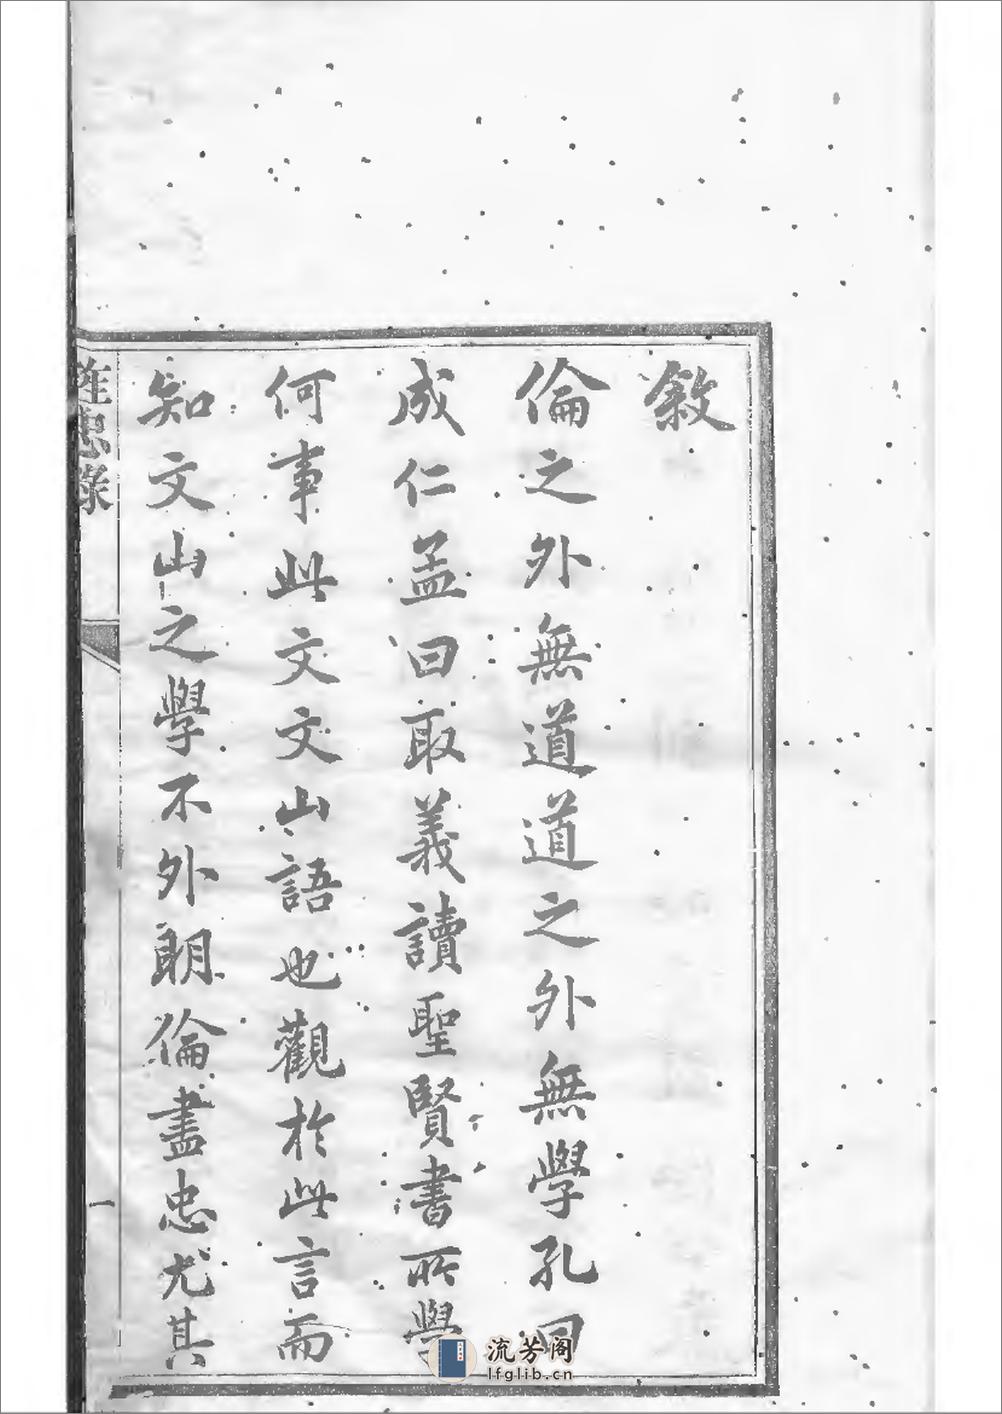 敘
倫之外無道道之外無學孔曰
成仁孟曰取義讀聖賢書所學
何事此文文山語也觀於此言而
知文山之學不外明倫盡忠尤其
旌忠錄
一
流芳阁
lfglib.cn